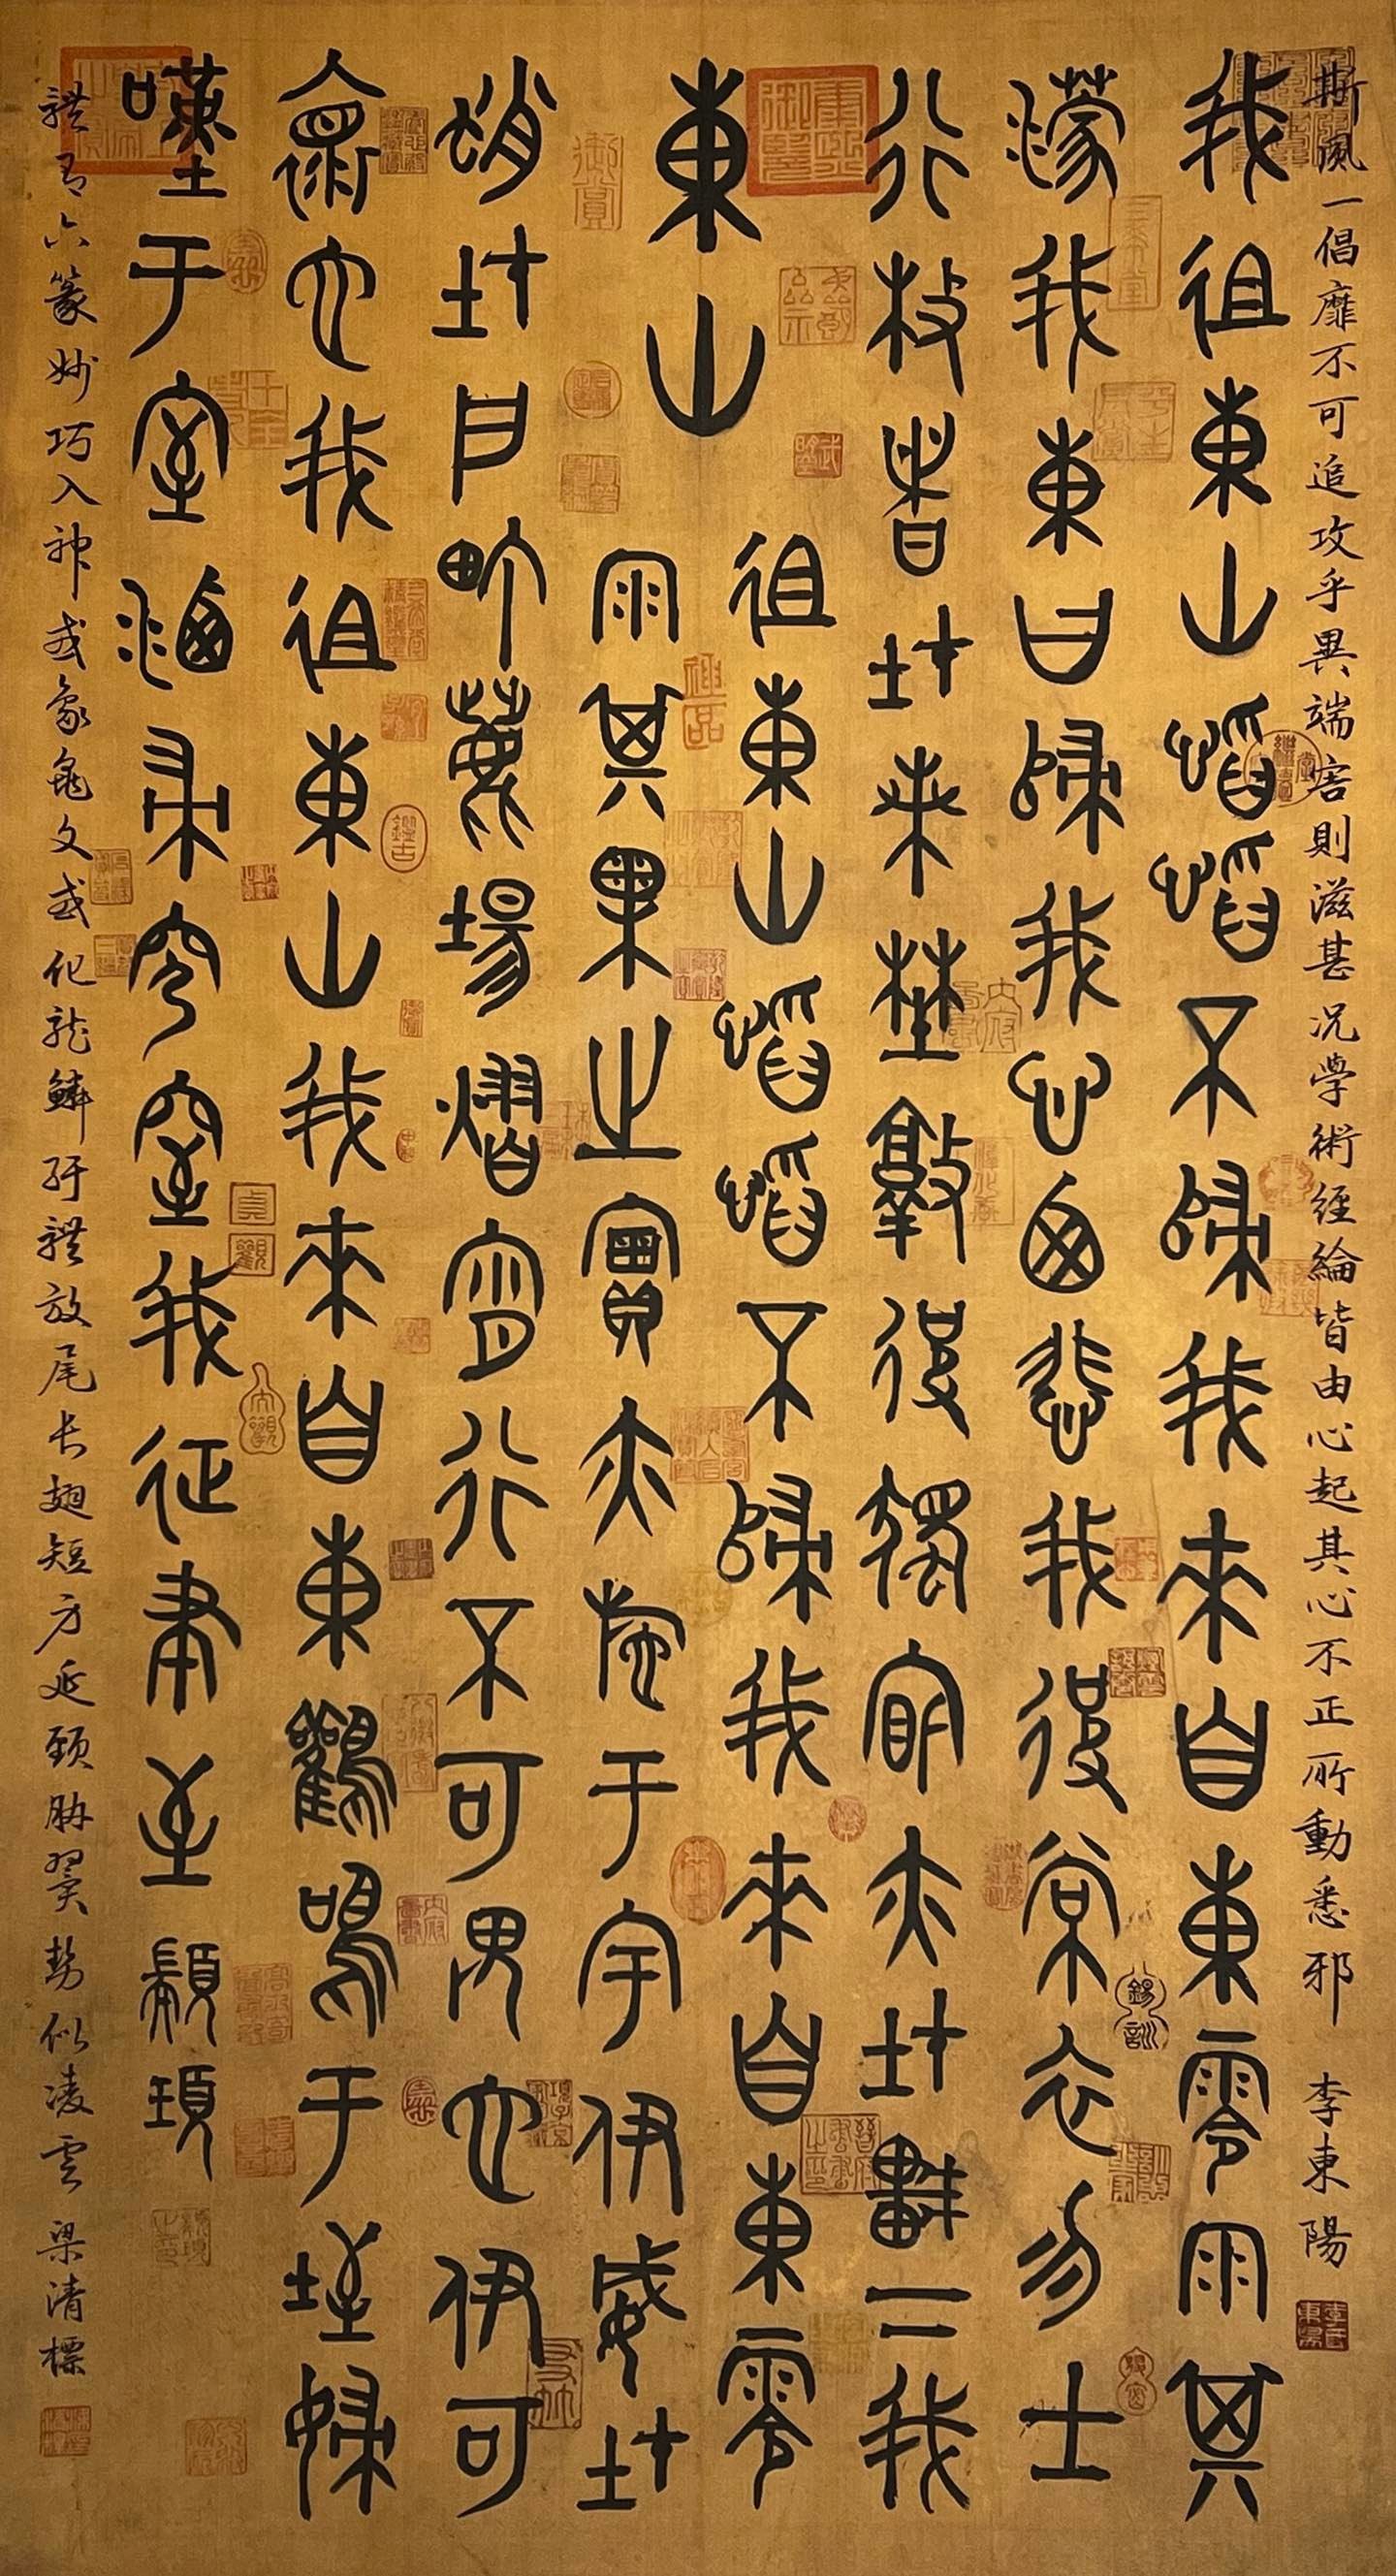 斯風一倡靡不可追攻乎異端害則滋甚況學術經綸皆由心起其心不正所動悉邪 李東陽
我徂東山慆慆不歸我來自東零雨其
濛我東曰歸我心西悲我彼裳衣勿士
行枚者在來埜敦彼獨宿亦在車下我
東山
徂東山慆慆不歸我來自東零
雨其果之實亦施于宇伊威在
蛸在戶町鹿場熠宵行不可畏也伊可
懷也我徂東山我來自東鸛鳴于垤婦
嘆于室洒掃穹窒我征聿至 顓頊
體有六篆妙巧入神或象龜文或化龍鱗紆體放尾長翅短方延頸脅翼勢似凌雲 梁清標
貞觀